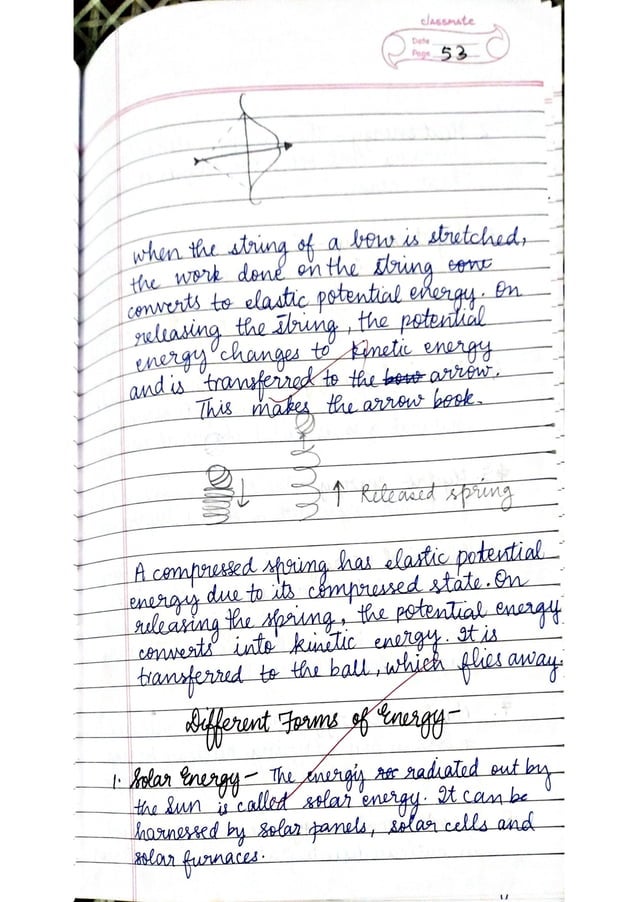 classmate
Date
Page 53
when the string of a bow is stretched,
the work done on the string conv
converts to elastic potential energy. On
releasing the string, the potential
energy changes to kinetic energy
and is transferred to the bow arrow.
This makes the arrow book.
↑ Released spring
A compressed spring has elastic potential
energy due to its compressed state. On
releasing the spring, the potential energy
converts into kinetic energy. It is
transferred to the ball, which flies away.
Different Forms of Energy-
1. Solar Energy - The energy radiated out by
the Sun is called solar energy. It can be
harnessed by solar panels, solar cells and
solar furnaces.